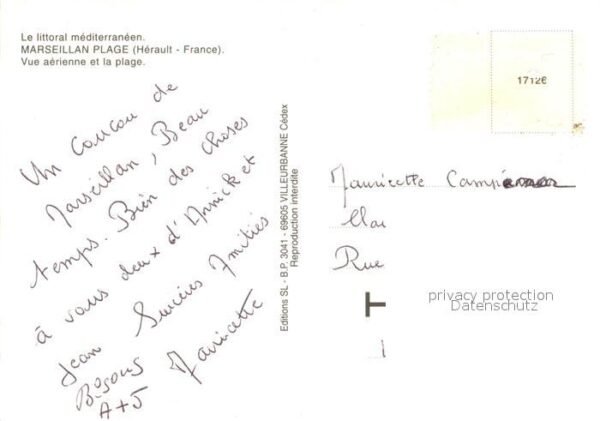 Le littoral méditerranéen.
MARSEILLAN PLAGE (Hérault - France).
Vue aérienne et la plage.
Un coucou de
Marseillan, Beau
temps. Bien des choses
à vous deux d'Annick et
Jean Sincères Amitiés
Bisous Mauricette
A+J
Editions SL - B.P. 3041 - 69605 VILLEURBANNE Cédex
Reproduction interdite
17126
Mauricette
Rue
privacy protection
Datenschutz